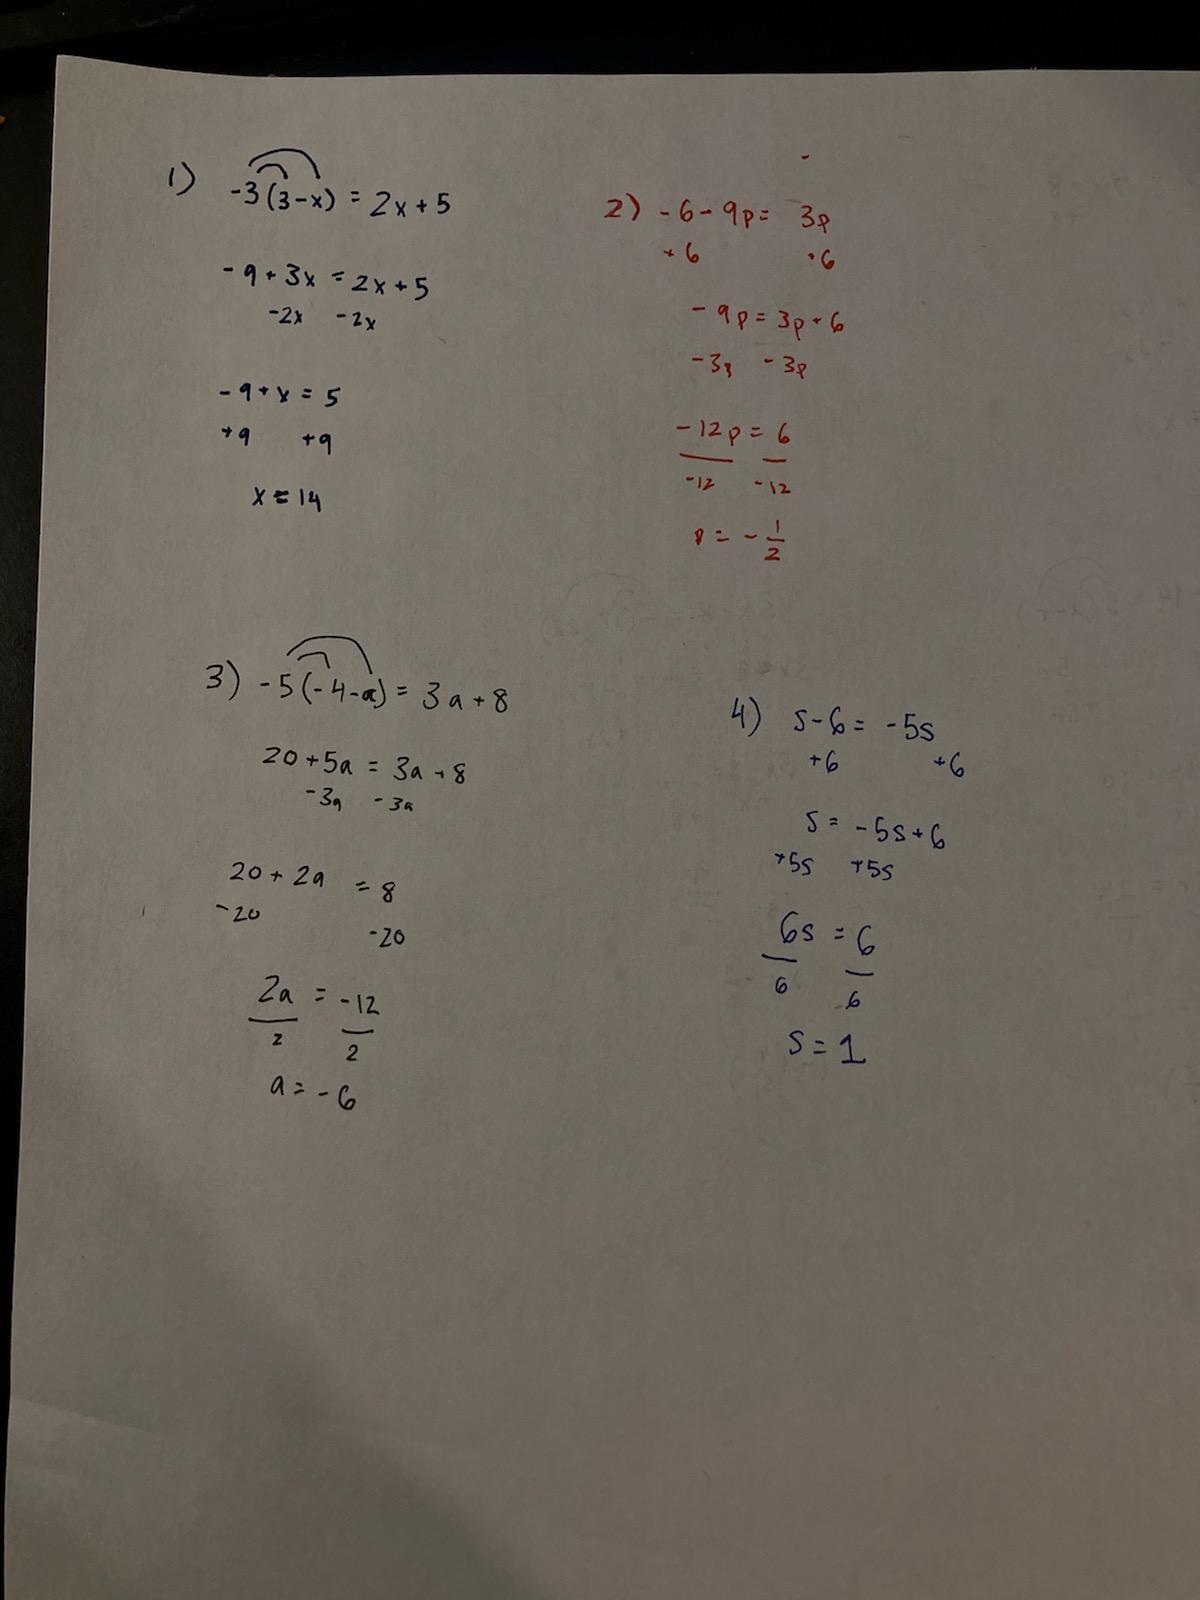 1) -3(3-x) = 2x+5
-9+3x = 2x+5
-2x -2x
-9+x = 5
+9 +9
x = 14
2) -6-9p = 3p
+6 +6
-9p = 3p+6
-3p -3p
-12p = 6
-12 -12
p = - 1/2
3) -5(-4-a) = 3a+8
20+5a = 3a+8
-3a -3a
20+2a = 8
-20 -20
2a = -12
2 2
a = -6
4) s-6 = -5s
+6 +6
s = -5s+6
+5s +5s
6s = 6
6 6
s = 1